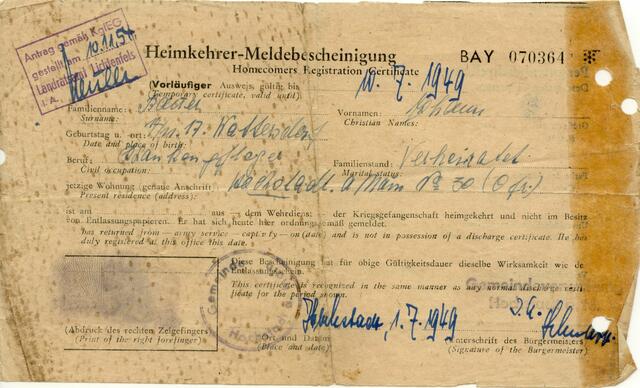 Antrag gemäß KgfEG
gestellt am 10.11.54
Landratsamt Lichtenfels
I. A.
Heimkehrer-Meldebescheinigung BAY 070364
Homecomers Registration Certificate
(Vorläufiger Ausweis, gültig bis 10. 7. 1949
(Temporary certificate, valid until)
Familienname: Vornamen: Johann
Surname: Christian Names:
Geburtstag u. ort:
Date and place of birth:
Beruf: Krankenpfleger Familienstand: Verheiratet
Civil occupation: Marital status:
jetzige Wohnung (genaue Anschrift) Hochstadt a/Main 30 (Ofr.)
Present residence (address):
ist am aus — dem Wehrdienst — der Kriegsgefangenschaft heimgekehrt und nicht im Besitz
von Entlassungspapieren. Er hat sich heute hier ordnungsgemäß gemeldet.
has returned from — army service — captivity — on (date) and is not in possession of a discharge certificate. He has
duly registered at this office this date.
Diese Bescheinigung hat für obige Gültigkeitsdauer dieselbe Wirksamkeit wie der
Entlassungsschein.
This certificate is recognized in the same manner as any discharge certi-
ficate for the period shown.
Hochstadt, 1. 7. 1949
(Abdruck des rechten Zeigefingers) Ort und Datum Unterschrift des Bürgermeisters
(Print of the right forefinger) (Place and date) (Signature of the Bürgermeister)